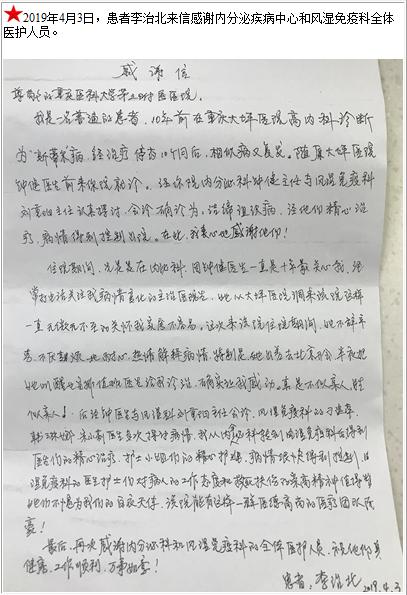 ★2019年4月3日，患者李治北来信感谢内分泌疾病中心和风湿免疫科全体
医护人员。
感谢信
尊敬的重庆医科大学第三附属医院：
我是一名普通的患者，10年前在重庆大坪医院高内科诊断
为 经治疗 10个月后，相似病又复发。随原大坪医院
钟健医生前来你院就诊。经你院内分泌科钟健主任与风湿免疫科
刘 主任认真探讨，会诊确诊为，结缔组织病，经他们精心治
疗，病情得到控制出院。在此，我衷心地感谢他们！
住院期间，先是在内分泌科，因钟健医生一直是十年最关心我，经
常打电话关注我病情变化的主治医院生，她从大坪医院调来该院这样
一直无微不至的关怀我实属不容易。这次来该院住院期间，她不辞辛
苦，不厌其烦地耐心，热情解释病情，特别是，她出差去北京开会，半夜把
她叫醒 她医生 诊治，确实让我感动。真是不似亲人，胜
似亲人！后经钟医生与风湿科刘 主任会诊，风湿免疫科的
医生多次探讨病情，我从内分泌科转到风湿免疫科后得到
医生们的精心治疗，护士小姐们的精心护理，病情很快得到控制，风
湿免疫科的医生护士们对病人的工作态度和救死扶伤的崇高精神值得赞
她们不愧为我们的白衣天使，该院能有这样一群医德高尚的医疗团队而
豪！
最后，再次感谢内分泌科和风湿免疫科的全体医护人员，祝他们身
健康，工作顺利，万事如意！
患者：李治北
2019.4.3